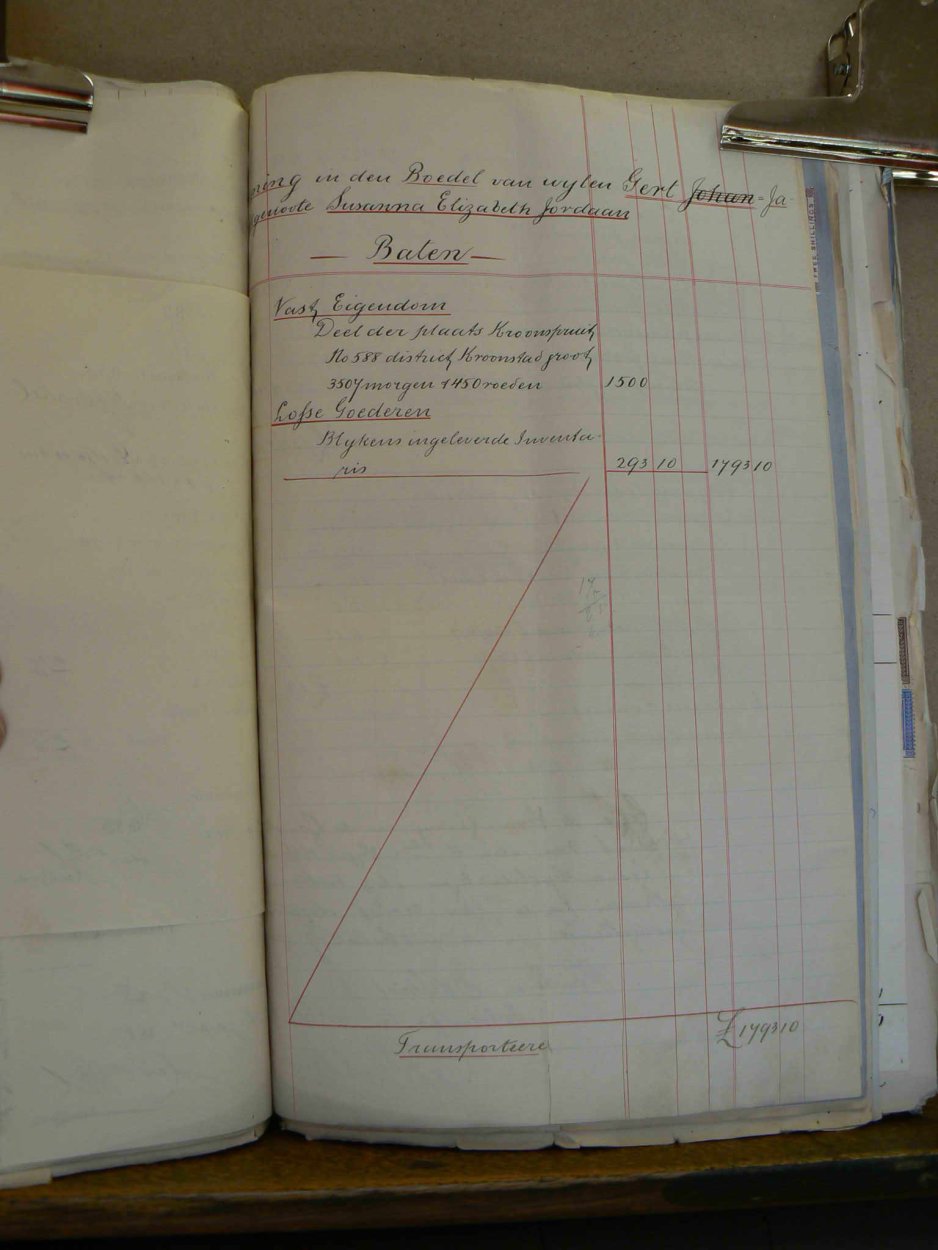 ning in den Boedel van wylen Gert Johan=Ja-
genoote Susanna Elizabeth Jordaan
— Baten —
Vast Eigendom
Deel der plaats Kroonspruit
No 588 district Kroonstad groot
3507 morgen 1450 roeden 1500
Losse Goederen
Blykens ingeleverde Inventa-
ris 293 10 1793 10
Transporteere £ 1793 10